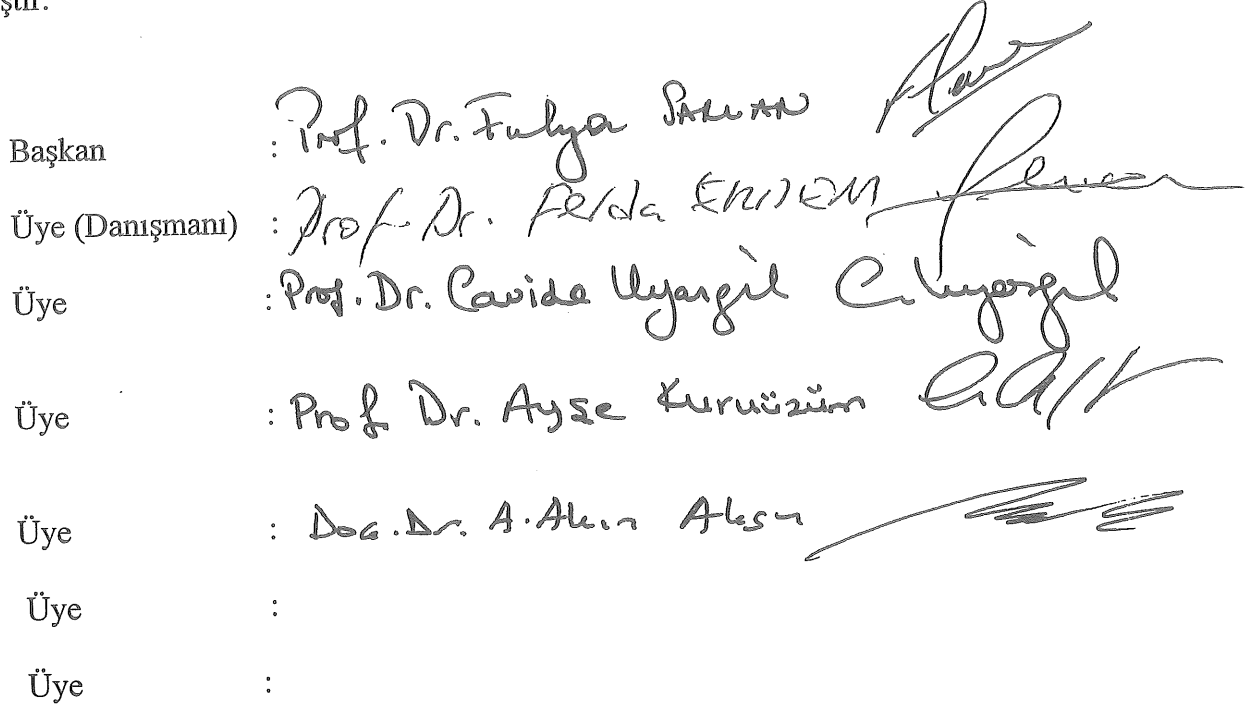 ştir.
Başkan : Prof. Dr. Fulya SARVAN
Üye (Danışmanı) : Prof. Dr. Ferda ERDEM
Üye : Prof. Dr. Cavide Uyargil C. Uyargil
Üye : Prof Dr. Ayşe Kuruüzüm
Üye : Doç. Dr. A. Akın Aksu
Üye :
Üye :